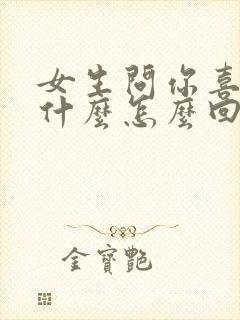 女生問你喜
什麼怎麼回
金寶艷